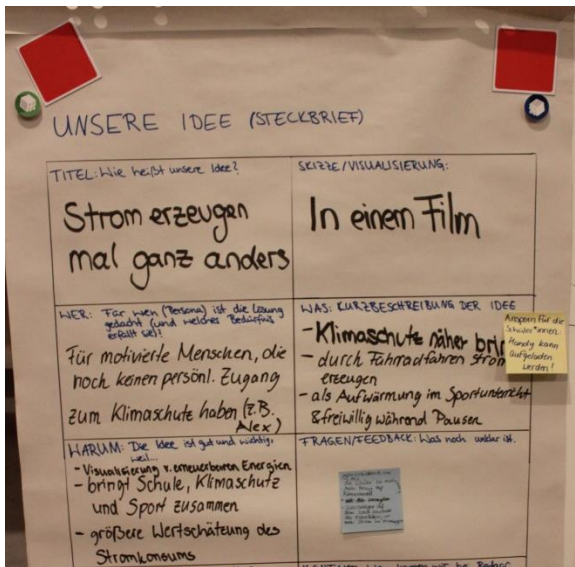 UNSERE IDEE (STECKBRIEF)
TITEL: Wie heißt unsere Idee?
Strom erzeugen
mal ganz anders
SKIZZE/VISUALISIERUNG:
In einem Film
WER: Für wen (Persona) ist die Lösung
gedacht (und welches Bedürfnis
erfüllt sie)?
Für motivierte Menschen, die
noch keinen persönl. Zugang
zum Klimaschutz haben (z.B.
Alex)
WAS: KURZBESCHREIBUNG DER IDEE
- Klimaschutz näher brin
- durch Fahrradfahren Strom
erzeugen
- als Aufwärmung im Sportunterricht
& freiwillig während Pausen
Ansporn für die
Schüler*innen:
Handy kann
aufgeladen
werden!
WARUM: Die Idee ist gut und wichtig,
weil...
- Visualisierung v. erneuerbaren Energien
- bringt Schule, Klimaschutz
und Sport zusammen
- größere Wertschätzung des
Stromkonsums
FRAGEN/FEEDBACK: Was noch unklar ist.